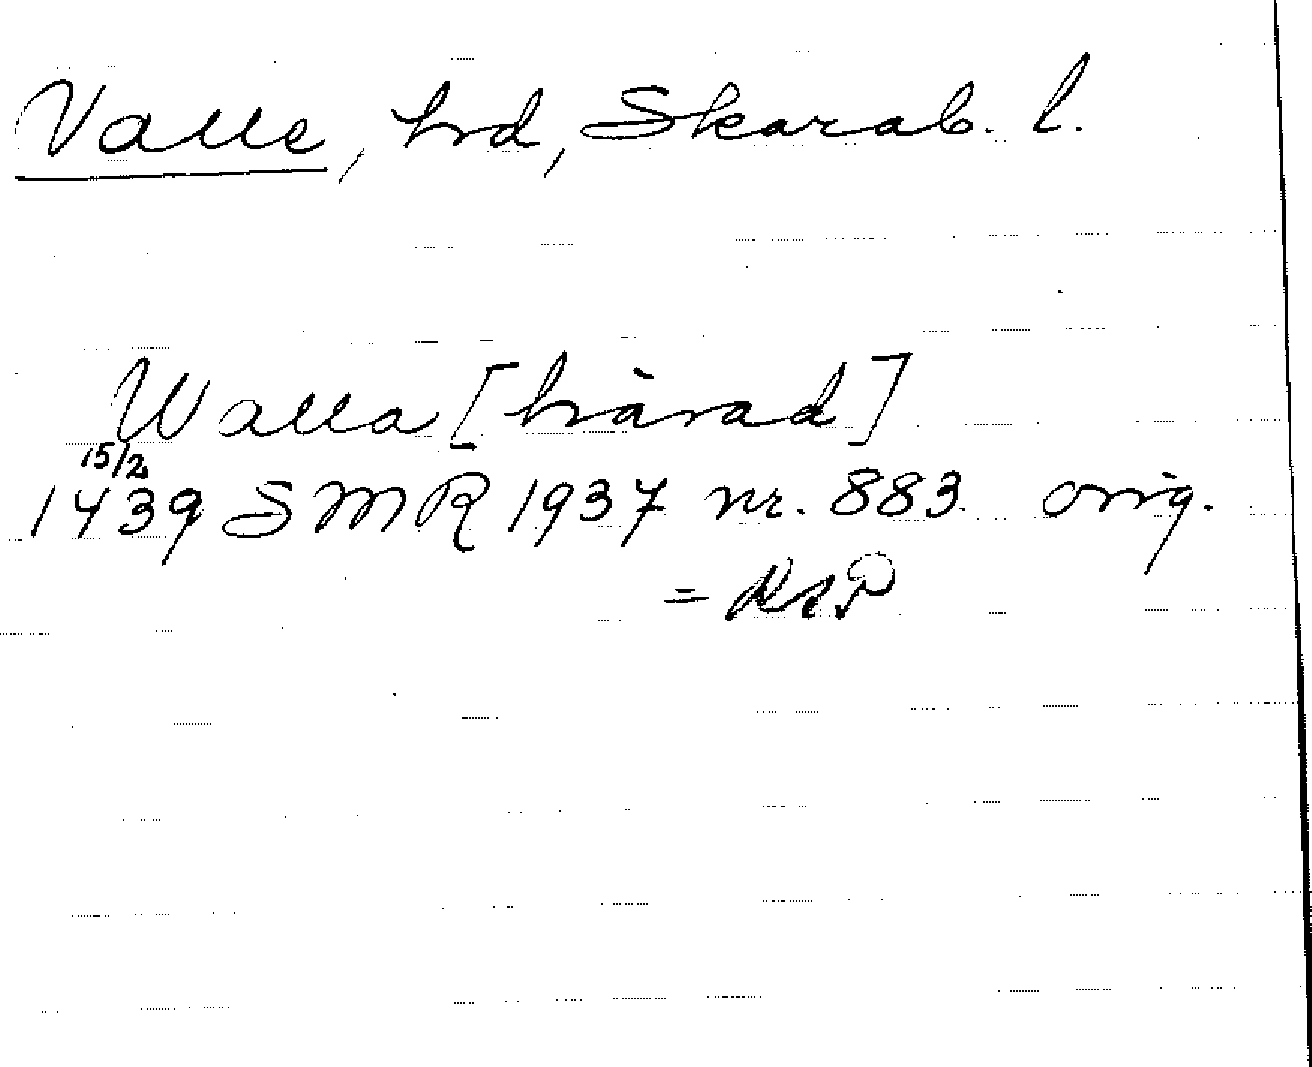 Valle, hrd, Skarab. l.
Walla [härad]
15/2
1439 SMR 1937 nr. 883. orig.
= RAP